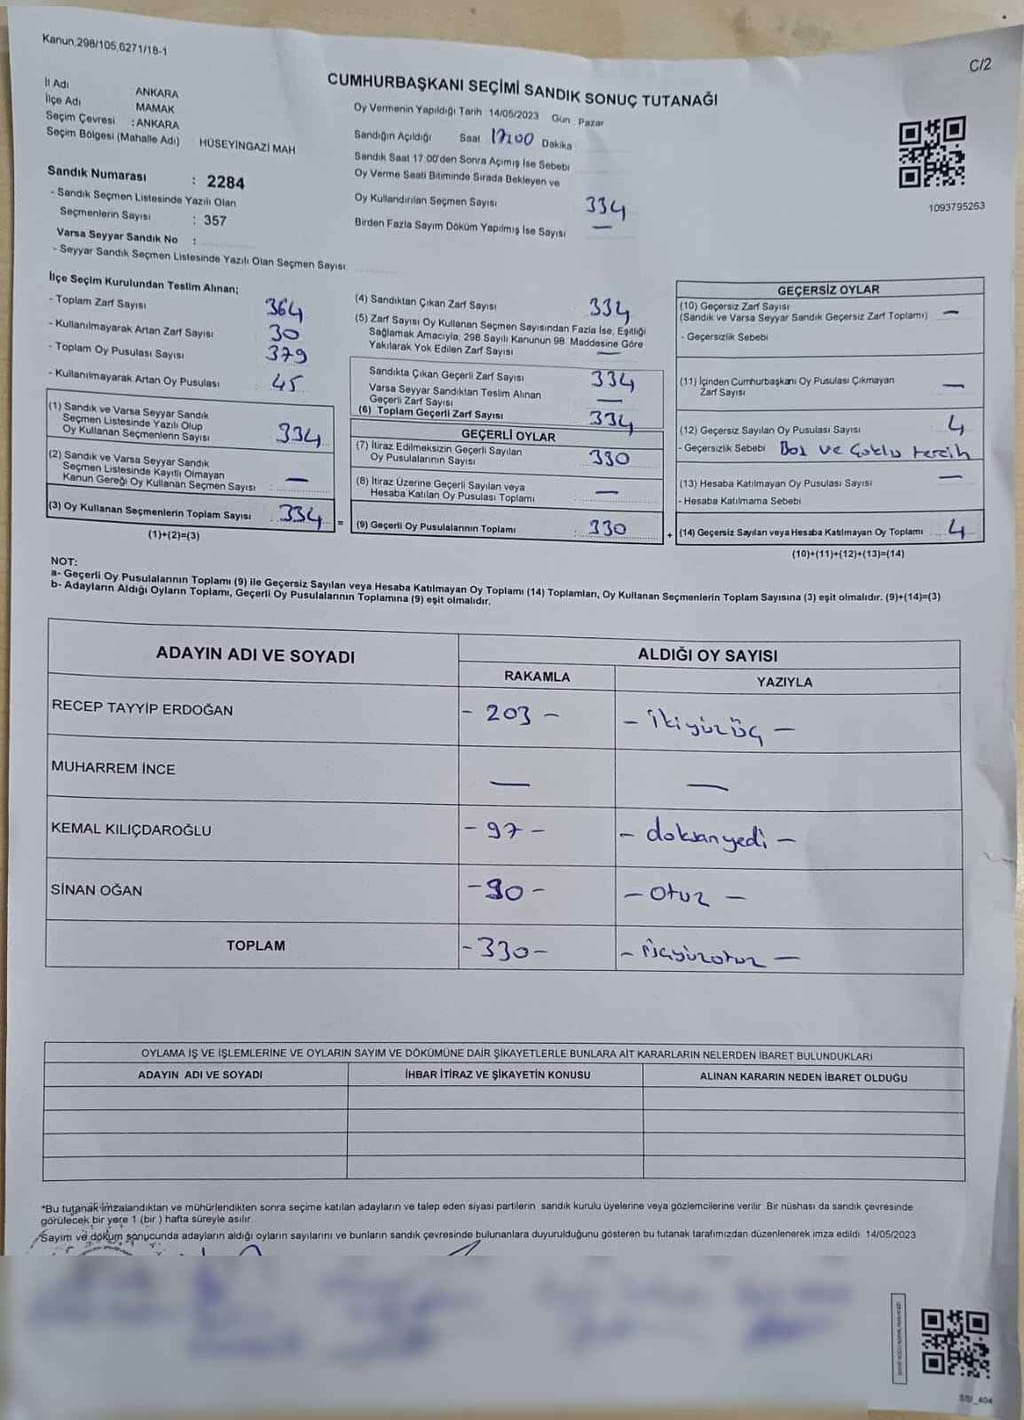 Kanun,298/105,6271/18-1
C/2
CUMHURBAŞKANI SEÇİMİ SANDIK SONUÇ TUTANAĞI
İl Adı ANKARA
İlçe Adı MAMAK
Seçim Çevresi : ANKARA
Seçim Bölgesi (Mahalle Adı) HÜSEYİNGAZİ MAH
Oy Vermenin Yapıldığı Tarih 14/05/2023 Gün Pazar
Sandığın Açıldığı Saat 17:00 Dakika
Sandık Saat 17 00'den Sonra Açımış İse Sebebi
Oy Verme Saati Bitiminde Sırada Bekleyen ve
Oy Kullandırılan Seçmen Sayısı 334
Birden Fazla Sayım Döküm Yapılmış İse Sayısı —
1093795263
Sandık Numarası : 2284
- Sandık Seçmen Listesinde Yazılı Olan
Seçmenlerin Sayısı : 357
Varsa Seyyar Sandık No :
- Seyyar Sandık Seçmen Listesinde Yazılı Olan Seçmen Sayısı
İlçe Seçim Kurulundan Teslim Alınan;
- Toplam Zarf Sayısı 364
- Kullanılmayarak Artan Zarf Sayısı 30
- Toplam Oy Pusulası Sayısı 379
- Kullanılmayarak Artan Oy Pusulası 45
(1) Sandık ve Varsa Seyyar Sandık
Seçmen Listesinde Yazılı Olup
Oy Kullanan Seçmenlerin Sayısı 334
(2) Sandık ve Varsa Seyyar Sandık
Seçmen Listesinde Kayıtlı Olmayan
Kanun Gereği Oy Kullanan Seçmen Sayısı —
(3) Oy Kullanan Seçmenlerin Toplam Sayısı 334 =
(1)+(2)=(3)
(4) Sandıktan Çıkan Zarf Sayısı 334
(5) Zarf Sayısı Oy Kullanan Seçmen Sayısından Fazla İse, Eşitliği
Sağlamak Amacıyla, 298 Sayılı Kanunun 98. Maddesine Göre
Yakılarak Yok Edilen Zarf Sayısı —
Sandıkta Çıkan Geçerli Zarf Sayısı 334
Varsa Seyyar Sandıktan Teslim Alınan
Geçerli Zarf Sayısı —
(6) Toplam Geçerli Zarf Sayısı 334
GEÇERLİ OYLAR
(7) İtiraz Edilmeksizin Geçerli Sayılan
Oy Pusulalarının Sayısı 330
(8) İtiraz Üzerine Geçerli Sayılan veya
Hesaba Katılan Oy Pusulası Toplamı —
(9) Geçerli Oy Pusulalarının Toplamı 330 +
GEÇERSİZ OYLAR
(10) Geçersiz Zarf Sayısı
(Sandık ve Varsa Seyyar Sandık Geçersiz Zarf Toplamı) —
- Geçersizlik Sebebi
(11) İçinden Cumhurbaşkanı Oy Pusulası Çıkmayan
Zarf Sayısı —
(12) Geçersiz Sayılan Oy Pusulası Sayısı 4
- Geçersizlik Sebebi Boş ve Çoklu tercih
(13) Hesaba Katılmayan Oy Pusulası Sayısı —
- Hesaba Katılmama Sebebi
(14) Geçersiz Sayılan veya Hesaba Katılmayan Oy Toplamı 4
(10)+(11)+(12)+(13)=(14)
NOT:
a- Geçerli Oy Pusulalarının Toplamı (9) ile Geçersiz Sayılan veya Hesaba Katılmayan Oy Toplamı (14) Toplamları, Oy Kullanan Seçmenlerin Toplam Sayısına (3) eşit olmalıdır. (9)+(14)=(3)
b- Adayların Aldığı Oyların Toplamı, Geçerli Oy Pusulalarının Toplamına (9) eşit olmalıdır.
ADAYIN ADI VE SOYADI
ALDIĞI OY SAYISI
RAKAMLA YAZIYLA
RECEP TAYYİP ERDOĞAN - 203 - - ikiyüzüç -
MUHARREM İNCE — —
KEMAL KILIÇDAROĞLU - 97 - - doksanyedi -
SİNAN OĞAN - 30 - - Otuz -
TOPLAM - 330 - - üçyüzotuz -
OYLAMA İŞ VE İŞLEMLERİNE VE OYLARIN SAYIM VE DÖKÜMÜNE DAİR ŞİKAYETLERLE BUNLARA AİT KARARLARIN NELERDEN İBARET BULUNDUKLARI
ADAYIN ADI VE SOYADI İHBAR İTİRAZ VE ŞİKAYETİN KONUSU ALINAN KARARIN NEDEN İBARET OLDUĞU
*Bu tutanak imzalandıktan ve mühürlendikten sonra seçime katılan adayların ve talep eden siyasi partilerin sandık kurulu üyelerine veya gözlemcilerine verilir. Bir nüshası da sandık çevresinde
görülecek bir yere 1 (bir ) hafta süreyle asılır.
Sayım ve döküm sonucunda adayların aldığı oyların sayılarını ve bunların sandık çevresinde bulunanlara duyurulduğunu gösteren bu tutanak tarafımızdan düzenlenerek imza edildi. 14/05/2023
SSI_404